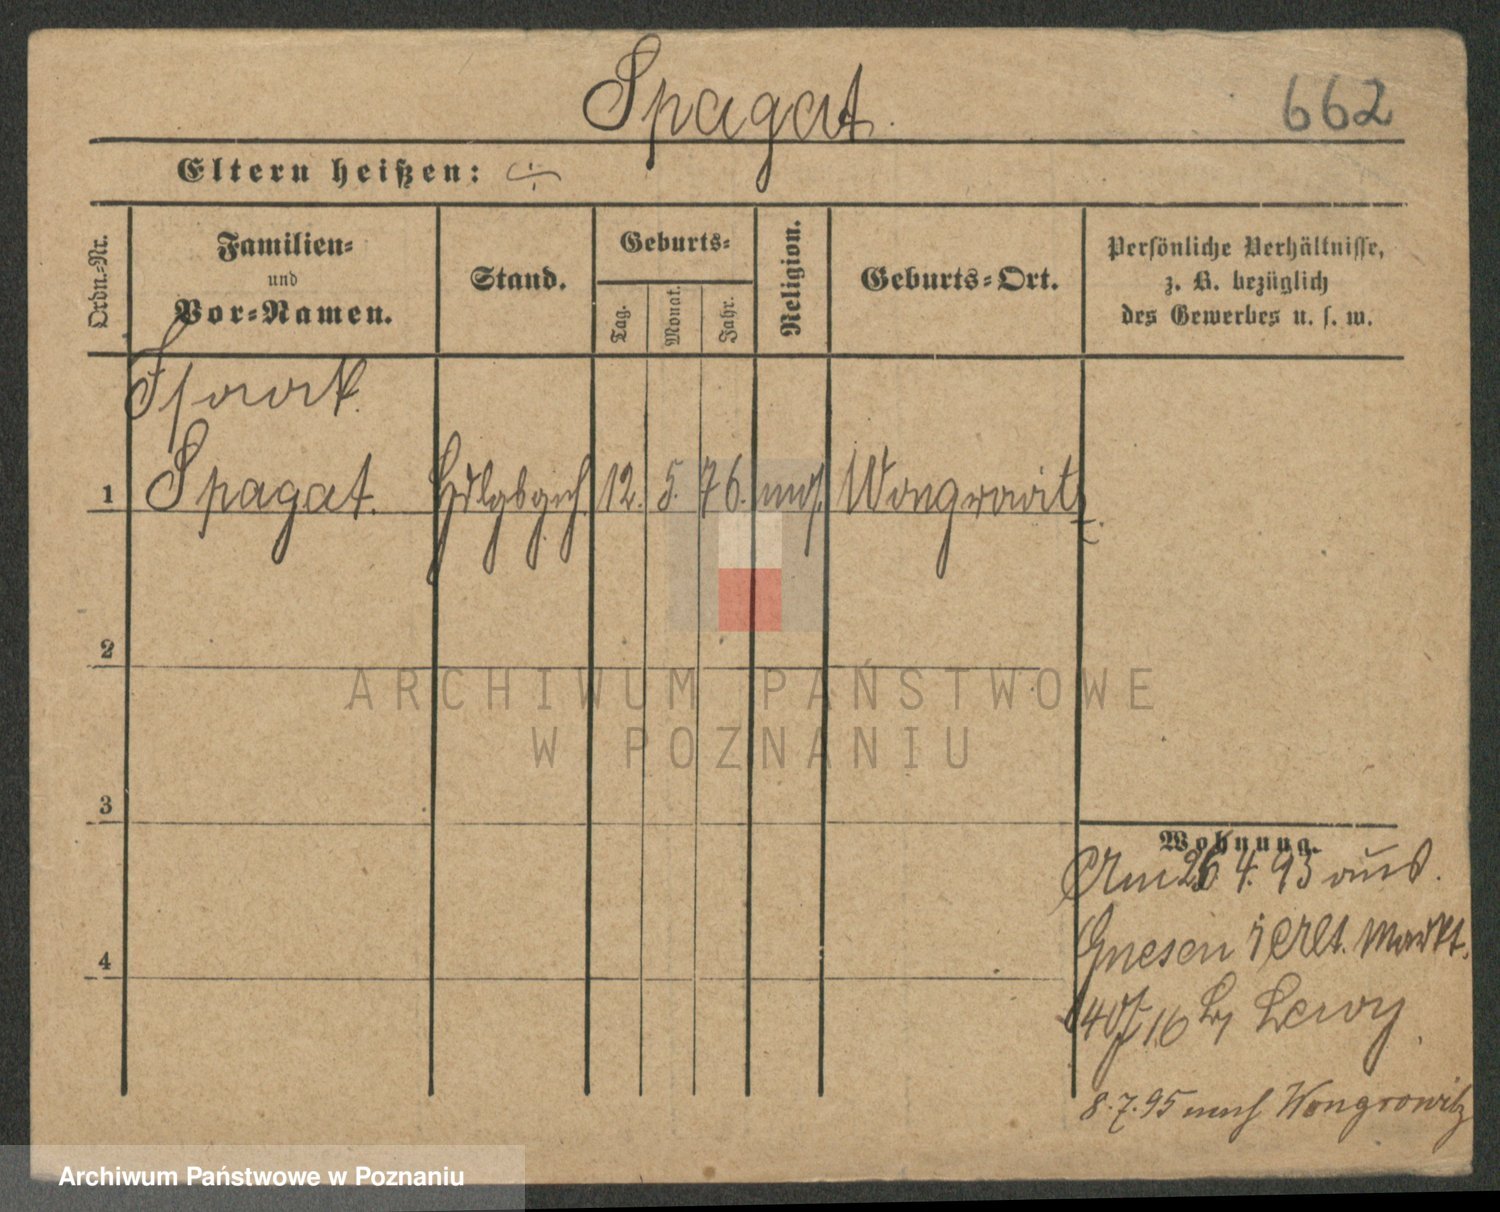 Spagat.
662
Eltern heißen:
Ordn.-Nr.
Familien-
und
Vor-Namen.
Stand.
Geburts-
Tag.
Monat.
Jahr.
Religion.
Geburts-Ort.
Persönliche Verhältnisse,
z. B. bezüglich
des Gewerbes u. s. w.
1
Spagat. 12. 5. 76. mos. Wongrowitz.
2
3
4
Wohnung.
Am 26 4. 93 aus
Gnesen Alt. Markt.
16 Lewy
8.7.95 nach Wongrowitz
ARCHIWUM PAŃSTWOWE
W POZNANIU
Archiwum Państwowe w Poznaniu